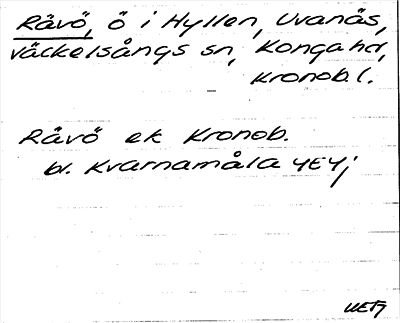 Råvö, ö i Hyllen, Uvanås,
väckelsångs sn, Konga hd,
Kronob. l.
Råvö ek Kronob.
bl. Kvarnamåla 4E4j